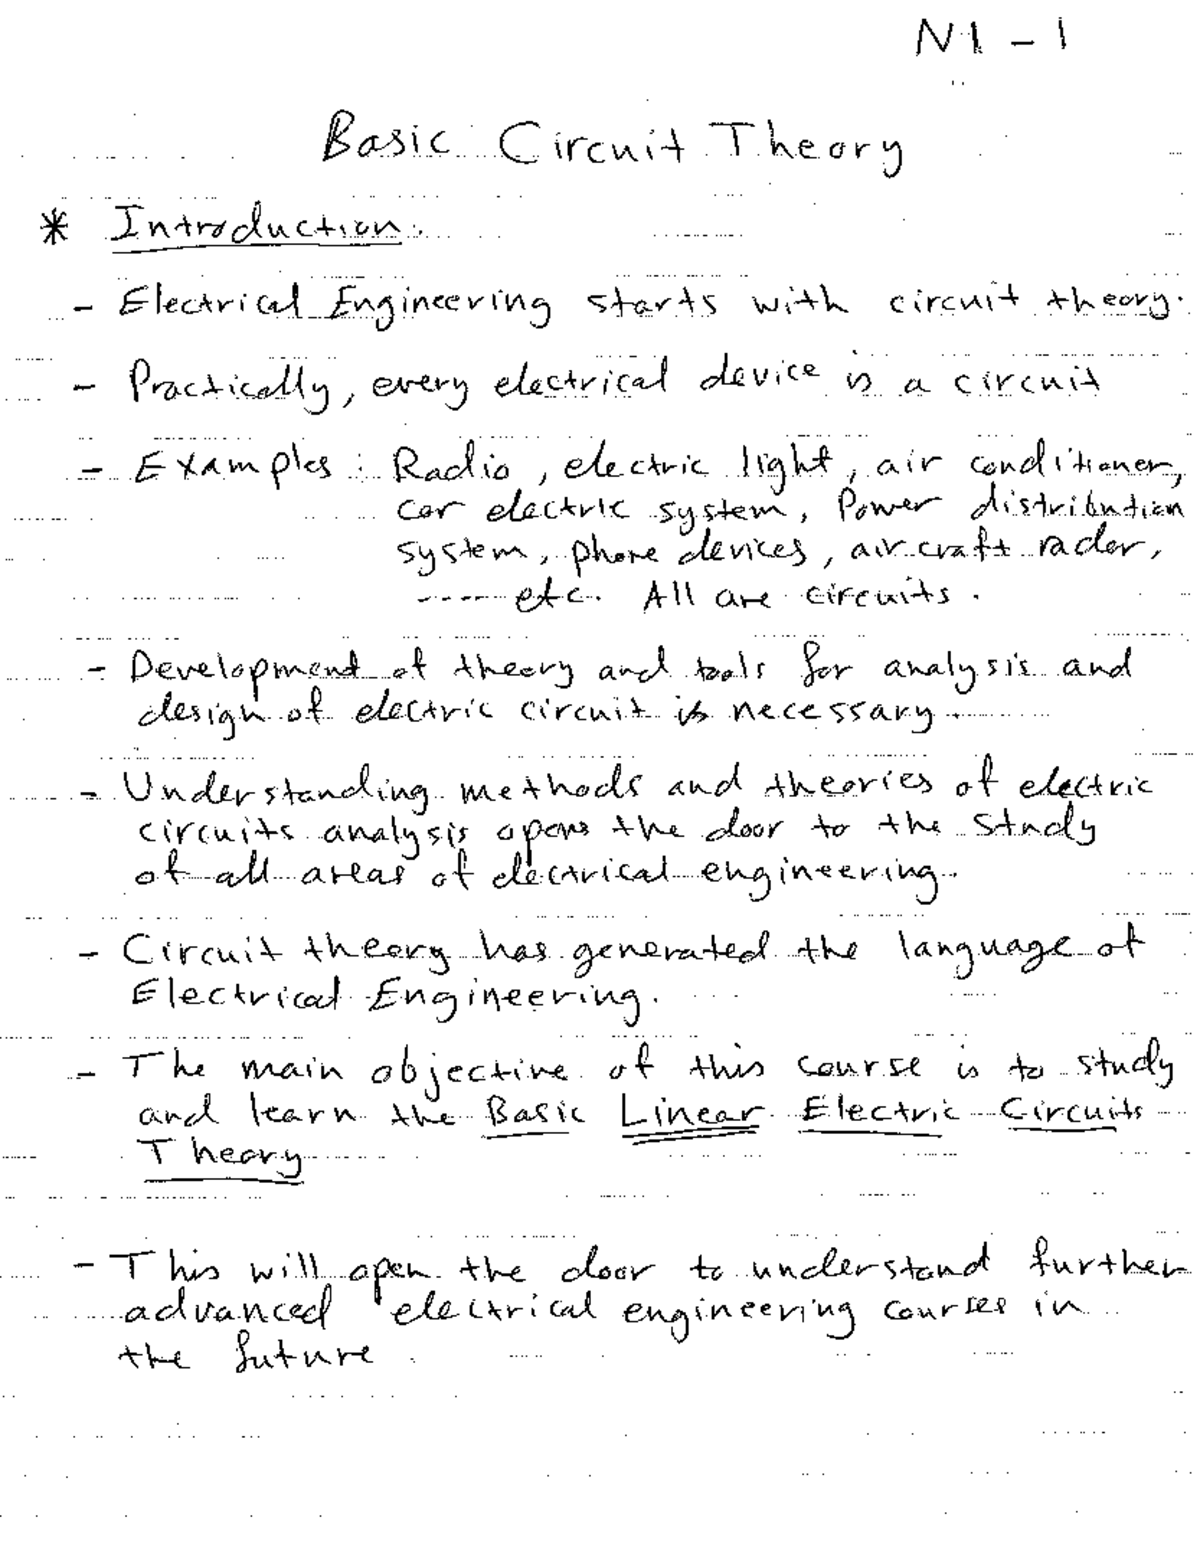 N1 - 1
Basic Circuit Theory
* Introduction:
- Electrical Engineering starts with circuit theory.
- Practically, every electrical device is a circuit
- Examples: Radio, electric light, air conditioner,
car electric system, Power distribution
system, phone devices, air craft radar,
----- etc. All are circuits.
- Development of theory and tools for analysis and
design of electric circuit is necessary.
- Understanding methods and theories of electric
circuits analysis opens the door to the study
of all areas of electrical engineering.
- Circuit theory has generated the language of
Electrical Engineering.
- The main objective of this course is to study
and learn the Basic Linear Electric Circuits
Theory
- This will open the door to understand further
advanced electrical engineering courses in
the future.